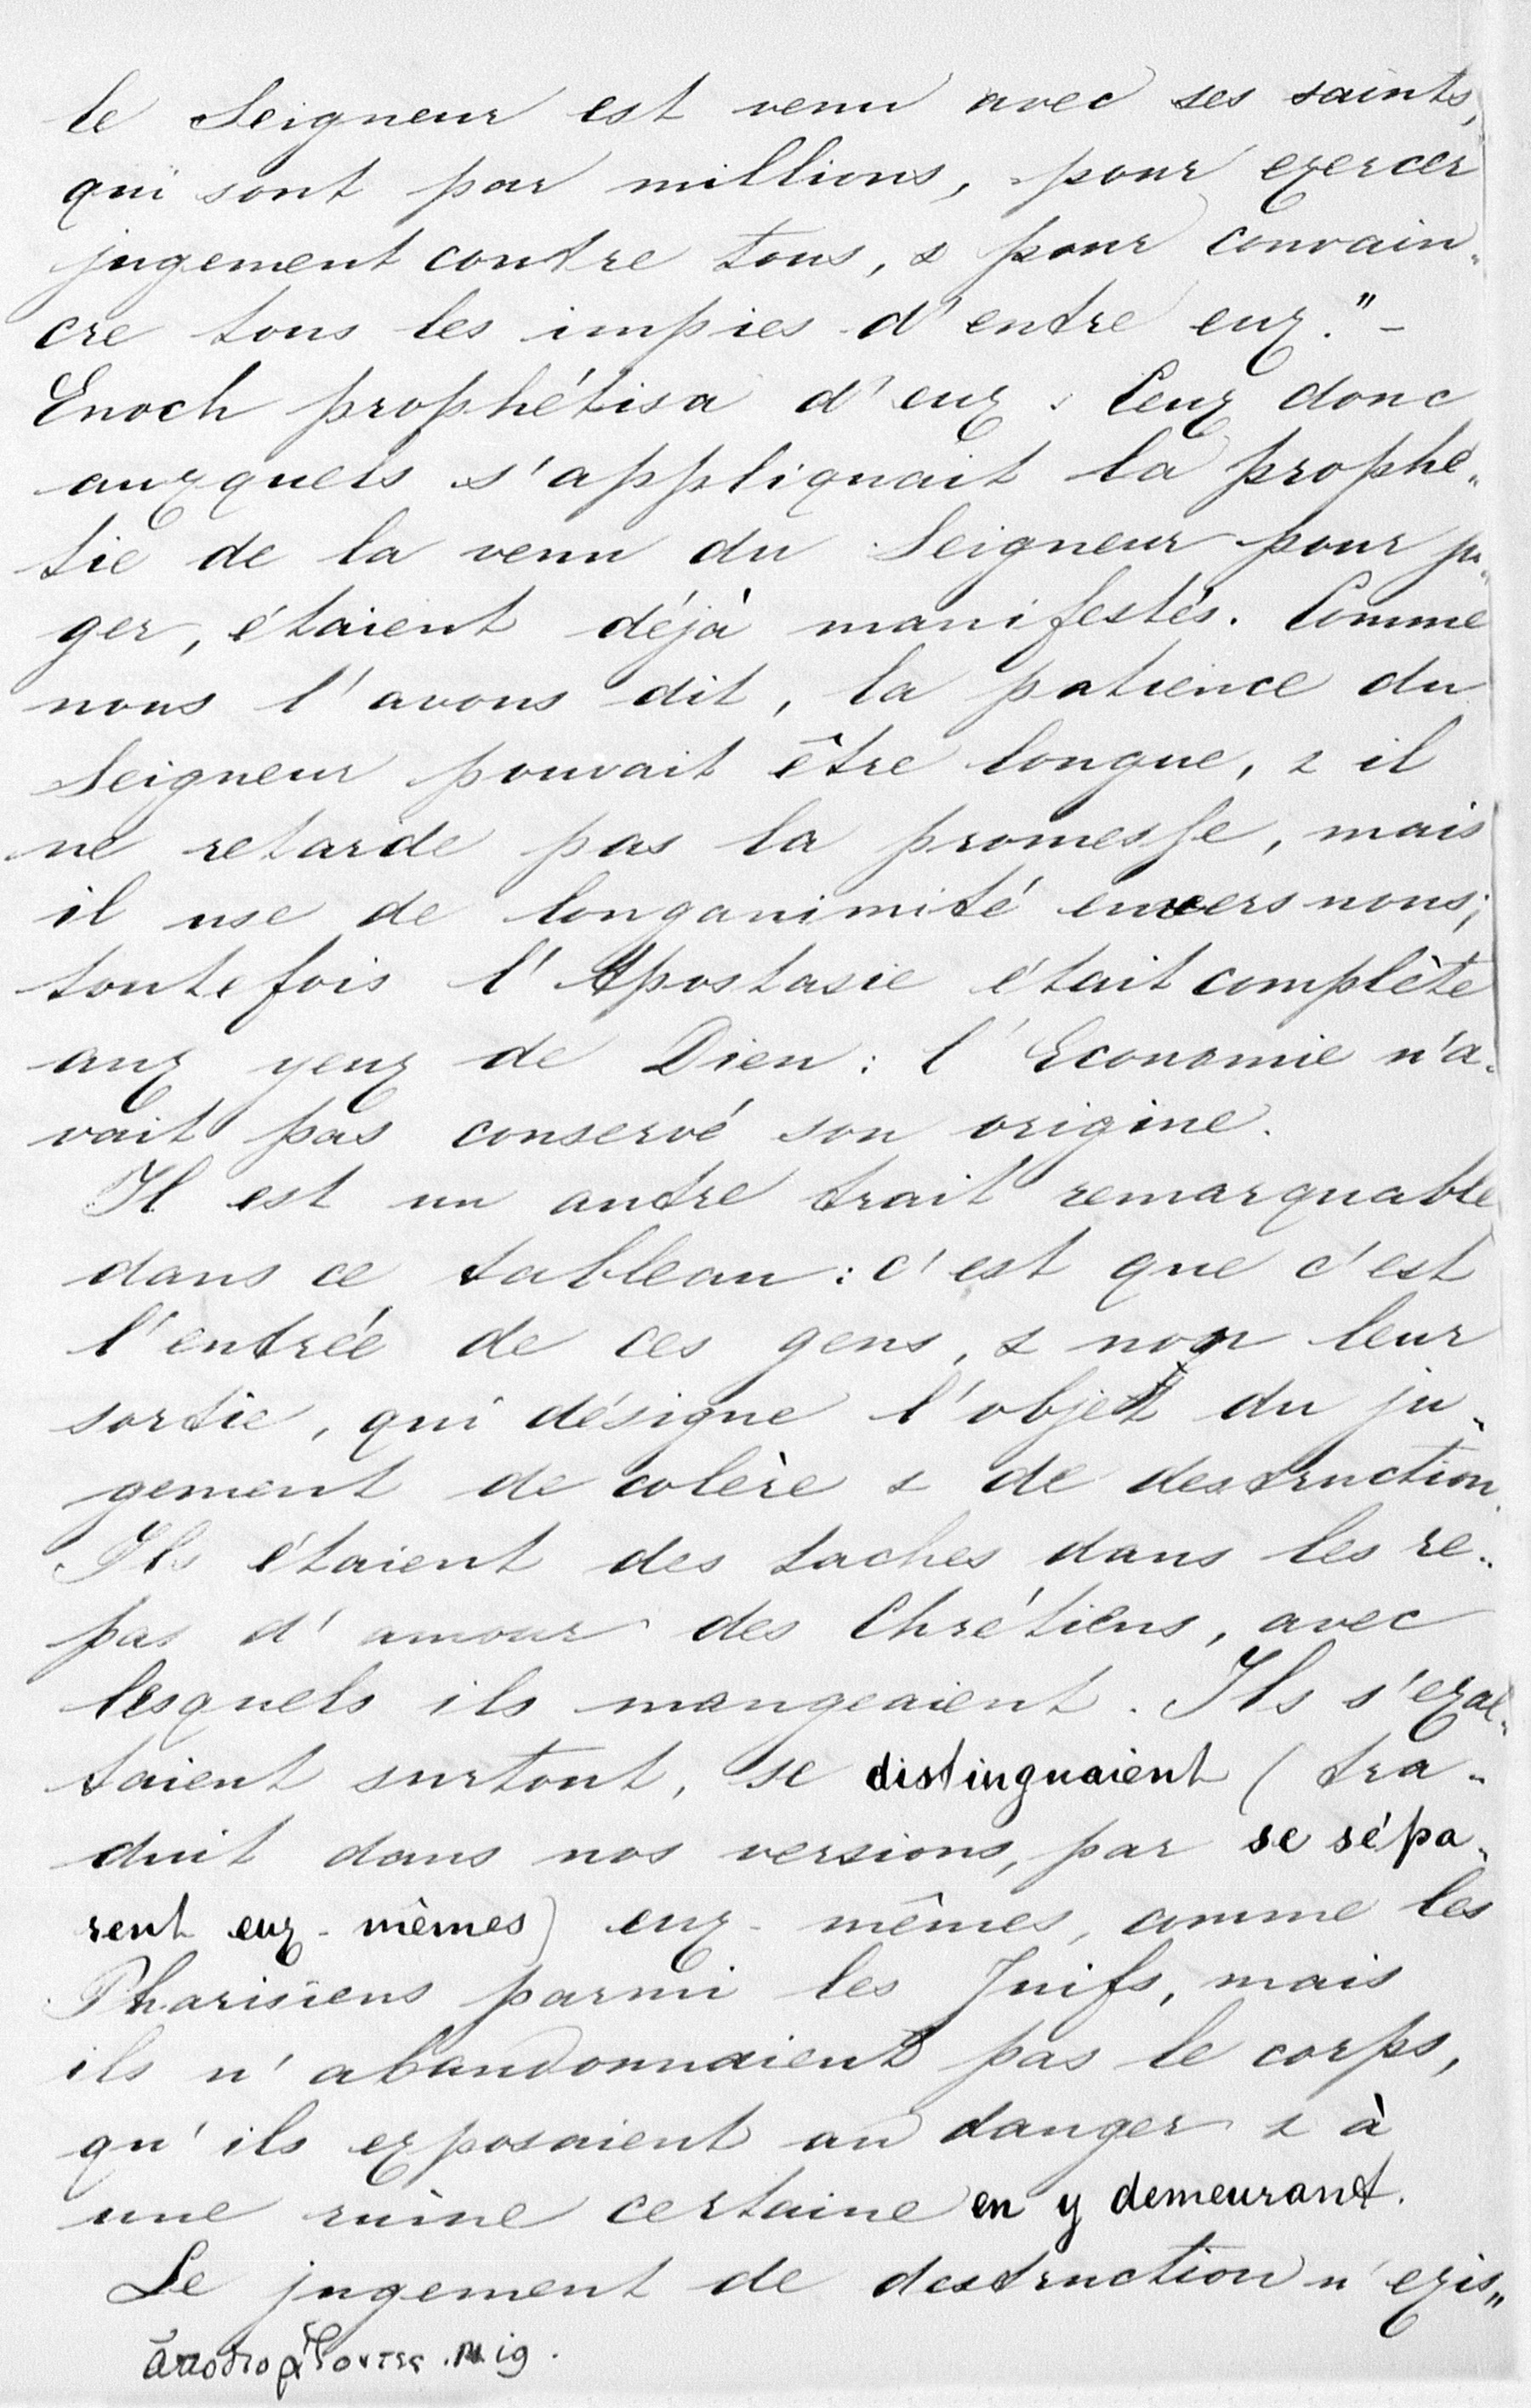 le Seigneur est venu avec ses saints,
qui sont par millions, pour exercer
jugement contre tous, & pour convain„
cre tous les impies d'entre eux." –
Enoch prophétisa d'eux. Ceux donc
auxquels s'appliquait la prophé„
tie de la venu du Seigneur pour ju„
ger, étaient déjà manifestés. Comme
nous l'avons dit, la patience du
Seigneur pouvait être longue, & il
ne retarde pas la promesse, mais
il use de longanimité envers nous;
toutefois l'Apostasie était complète
aux yeux de Dieu : l'Economie n'a„
vait pas conservé son origine.
Il est un autre trait remarquable
dans ce tableau : c'est que c'est
l'entrée de ces gens, & non leur
sortie, qui désigne l'objet du ju„
gement de colère & de destruction.
Ils étaient des taches dans les re„
pas d'amour des Chrétiens, avec
lesquels ils mangeaient. Ils s'exal„
taient surtout, se distinguaient (tra„
duit dans nos versions, par se sépa„
rent eux-mêmes) eux-mêmes, comme les
Pharisiens parmi les Juifs, mais
ils n'abandonnaient pas le corps,
qu'ils exposaient au danger & à
une ruine certaine en y demeurant.
Le jugement de destruction n'exis„